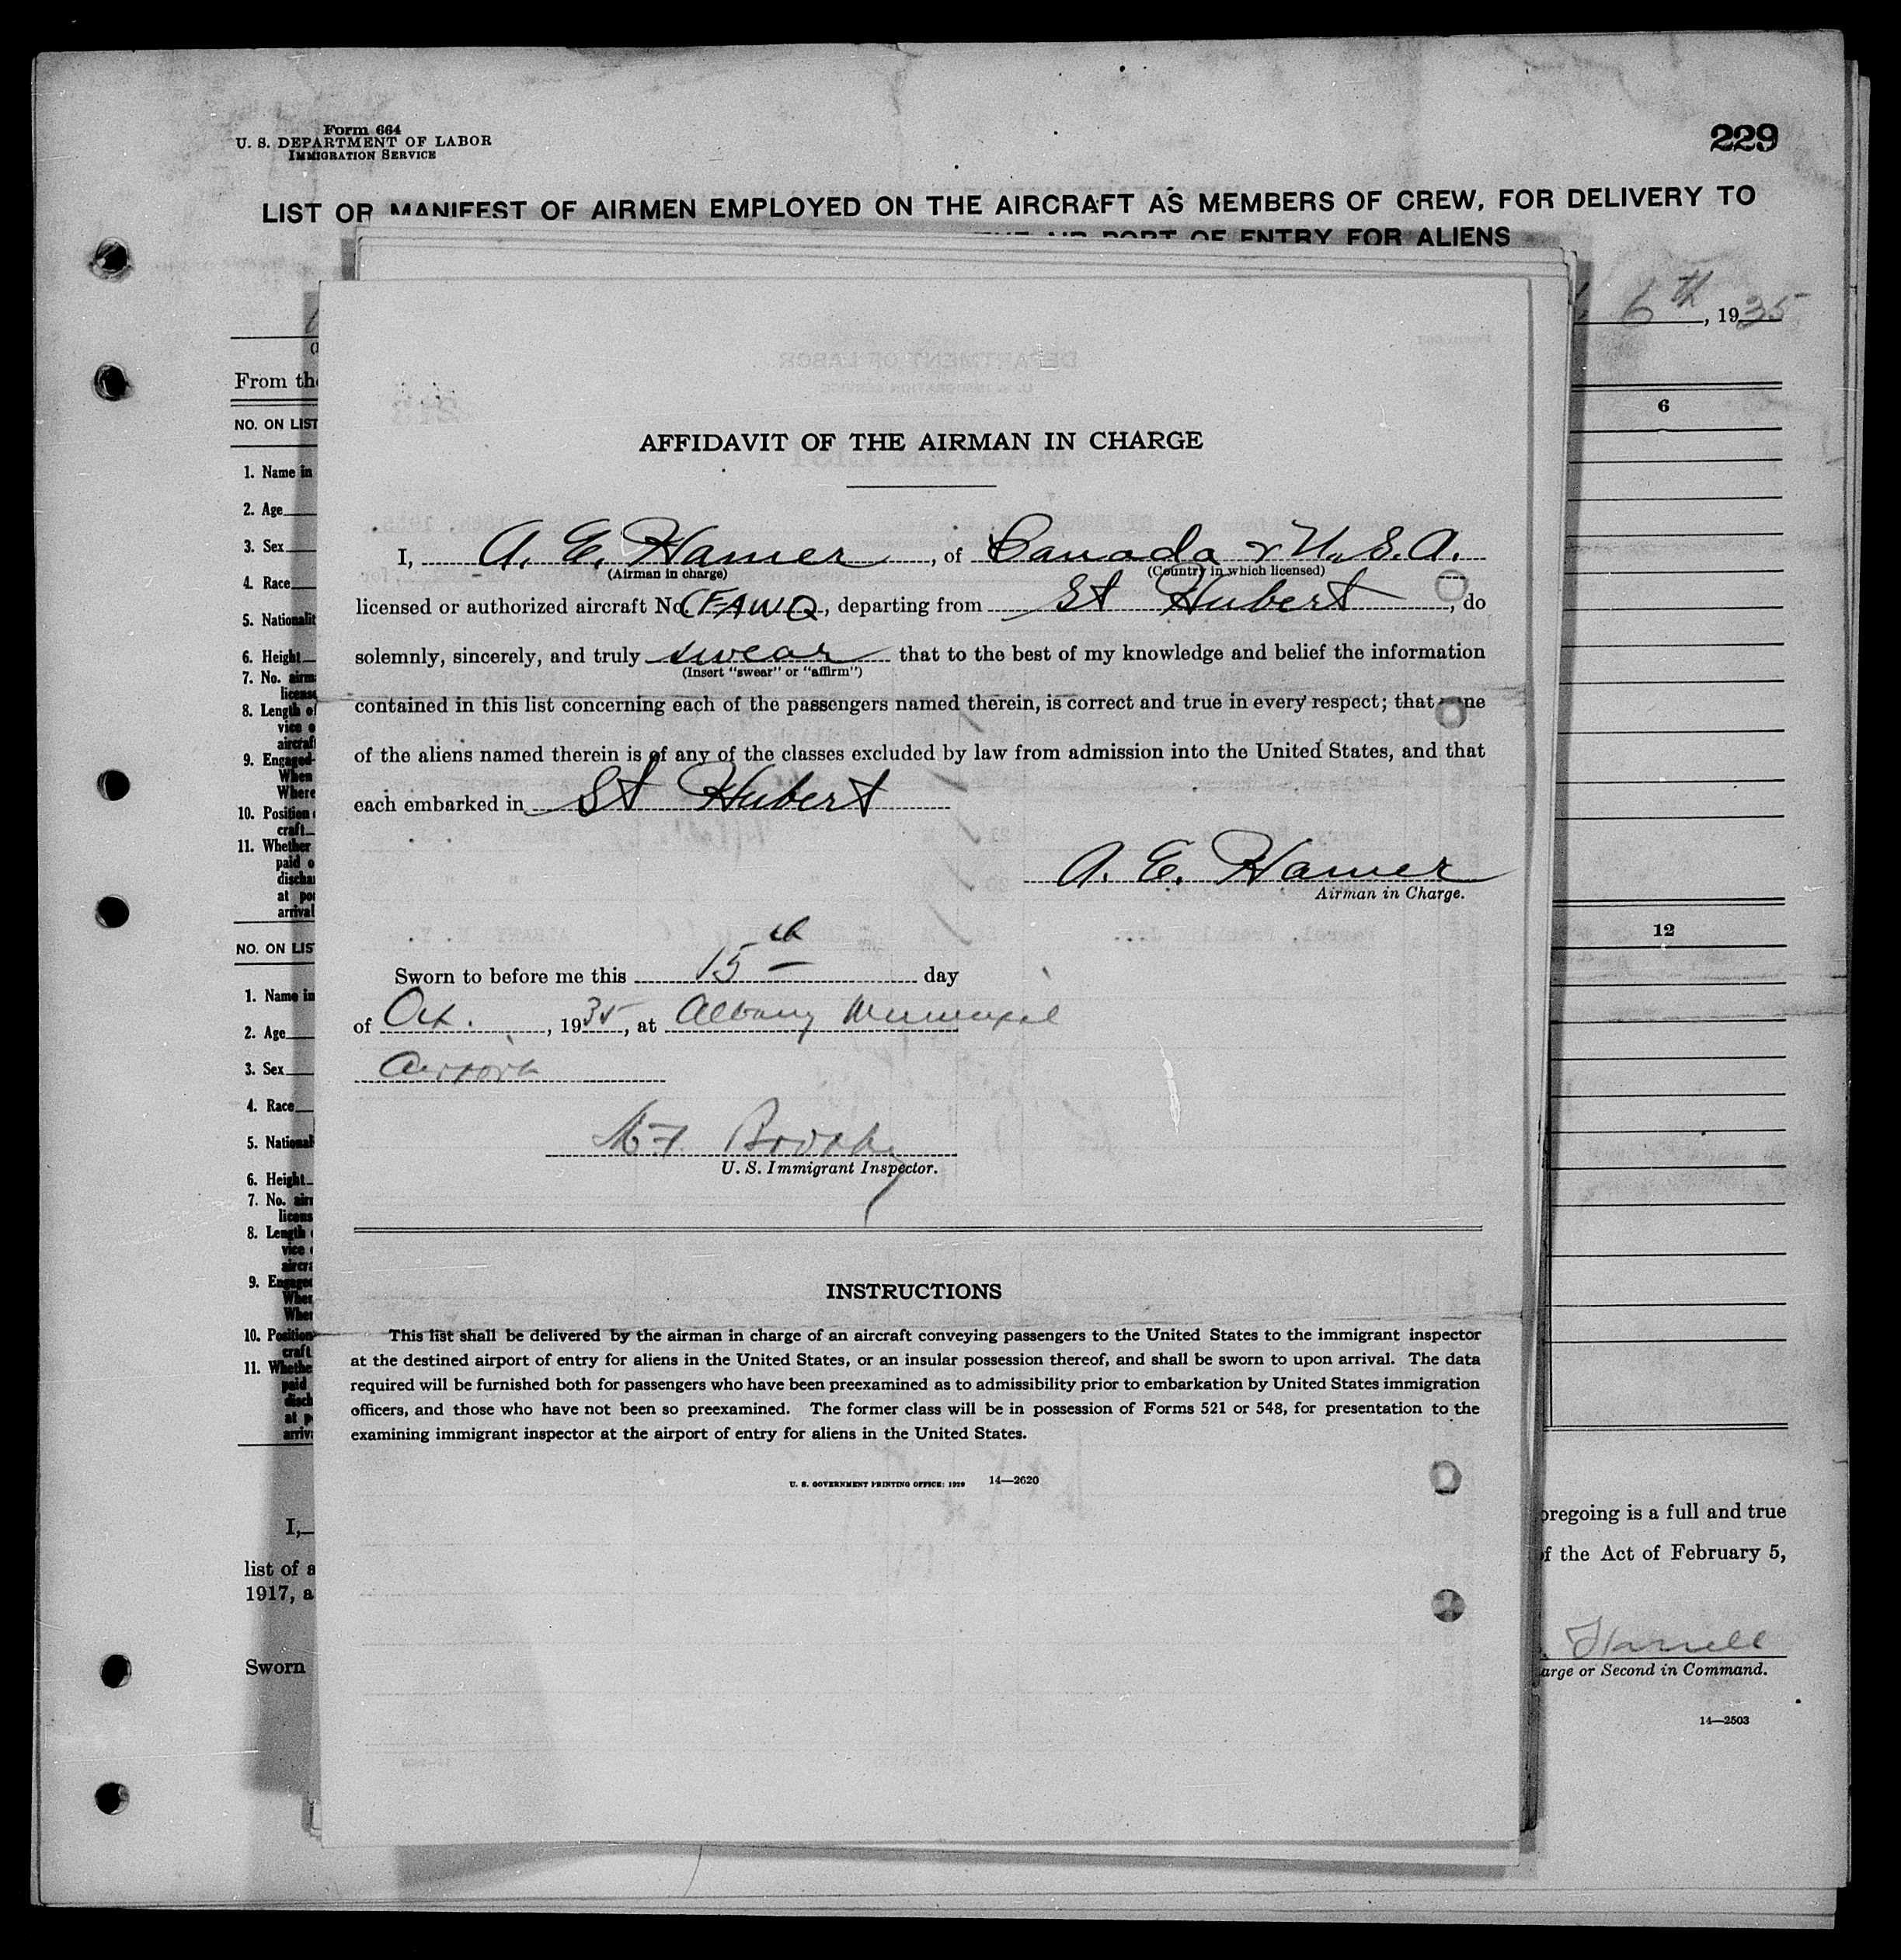 Form 664
U. S. DEPARTMENT OF LABOR
IMMIGRATION SERVICE
229
LIST OR MANIFEST OF AIRMEN EMPLOYED ON THE AIRCRAFT AS MEMBERS OF CREW, FOR DELIVERY TO
PORT OF ENTRY FOR ALIENS
6th, 1935
From the
NO. ON LIST
6
1. Name in
2. Age
3. Sex
4. Race
5. Nationalit
6. Height
7. No. airm
license
8. Length of
vice o
aircraft
9. Engaged
When
Where
10. Position
craft
11. Whether
paid o
dischar
at por
arrival
NO. ON LIS
12
1. Name in
2. Age
3. Sex
4. Race
5. National
6. Height
7. No. airm
licens
8. Length
vice
aircra
9. Engaged
When
Wher
10. Position
craft
11. Whethe
paid
disch
at p
arriv
I,
list of a
1917, a
Sworn
AFFIDAVIT OF THE AIRMAN IN CHARGE
I, A. E. Hamer, of Canada & U.S.A.
(Airman in charge) (Country in which licensed)
licensed or authorized aircraft No. CFAWQ, departing from St Hubert, do
solemnly, sincerely, and truly swear that to the best of my knowledge and belief the information
(Insert "swear" or "affirm")
contained in this list concerning each of the passengers named therein, is correct and true in every respect; that none
of the aliens named therein is of any of the classes excluded by law from admission into the United States, and that
each embarked in St Hubert
A. E. Hamer
Airman in Charge.
Sworn to before me this 15th day
of Oct., 1935, at Albany Municipal
Airport
U. S. Immigrant Inspector.
INSTRUCTIONS
This list shall be delivered by the airman in charge of an aircraft conveying passengers to the United States to the immigrant inspector
at the destined airport of entry for aliens in the United States, or an insular possession thereof, and shall be sworn to upon arrival. The data
required will be furnished both for passengers who have been preexamined as to admissibility prior to embarkation by United States immigration
officers, and those who have not been so preexamined. The former class will be in possession of Forms 521 or 548, for presentation to the
examining immigrant inspector at the airport of entry for aliens in the United States.
U. S. GOVERNMENT PRINTING OFFICE: 1929 14—2620
oregoing is a full and true
of the Act of February 5,
arge or Second in Command.
14—2503